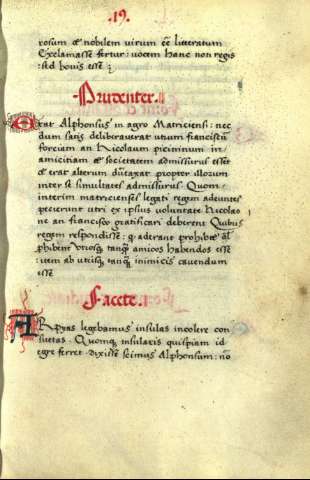 .19.
rosum & nobilem virum eē litteratum
Exclamasse fertur: vocem hanc non regis
sed bovis esse;
Prudenter.
Erat Alphonsus in agro Matriciensi: nec
dum satis deliberaverat utrum franciscū
forciam an Nicolaum picininum in
amicitiam & societatem admissurus esset
& erat alterum dūtaxat propter illorum
inter se simultates admissurus. Quom
interim matricienses legati regem adeuntes
petierunt utri ex ipsius voluntate Nicolao
ne an francisco gratificari deberent Quibus
regem respondisse:
utrosq; tanq̄ amicos habendos esse
item ab utrisq; tanq̄ inimicis cavendum
esse
Facete.
ARpyas legebamus insulas incolere con
suetas. Quomq; insularis quispiam id
egre ferret. dixisse ferunt Alphonsum: nō